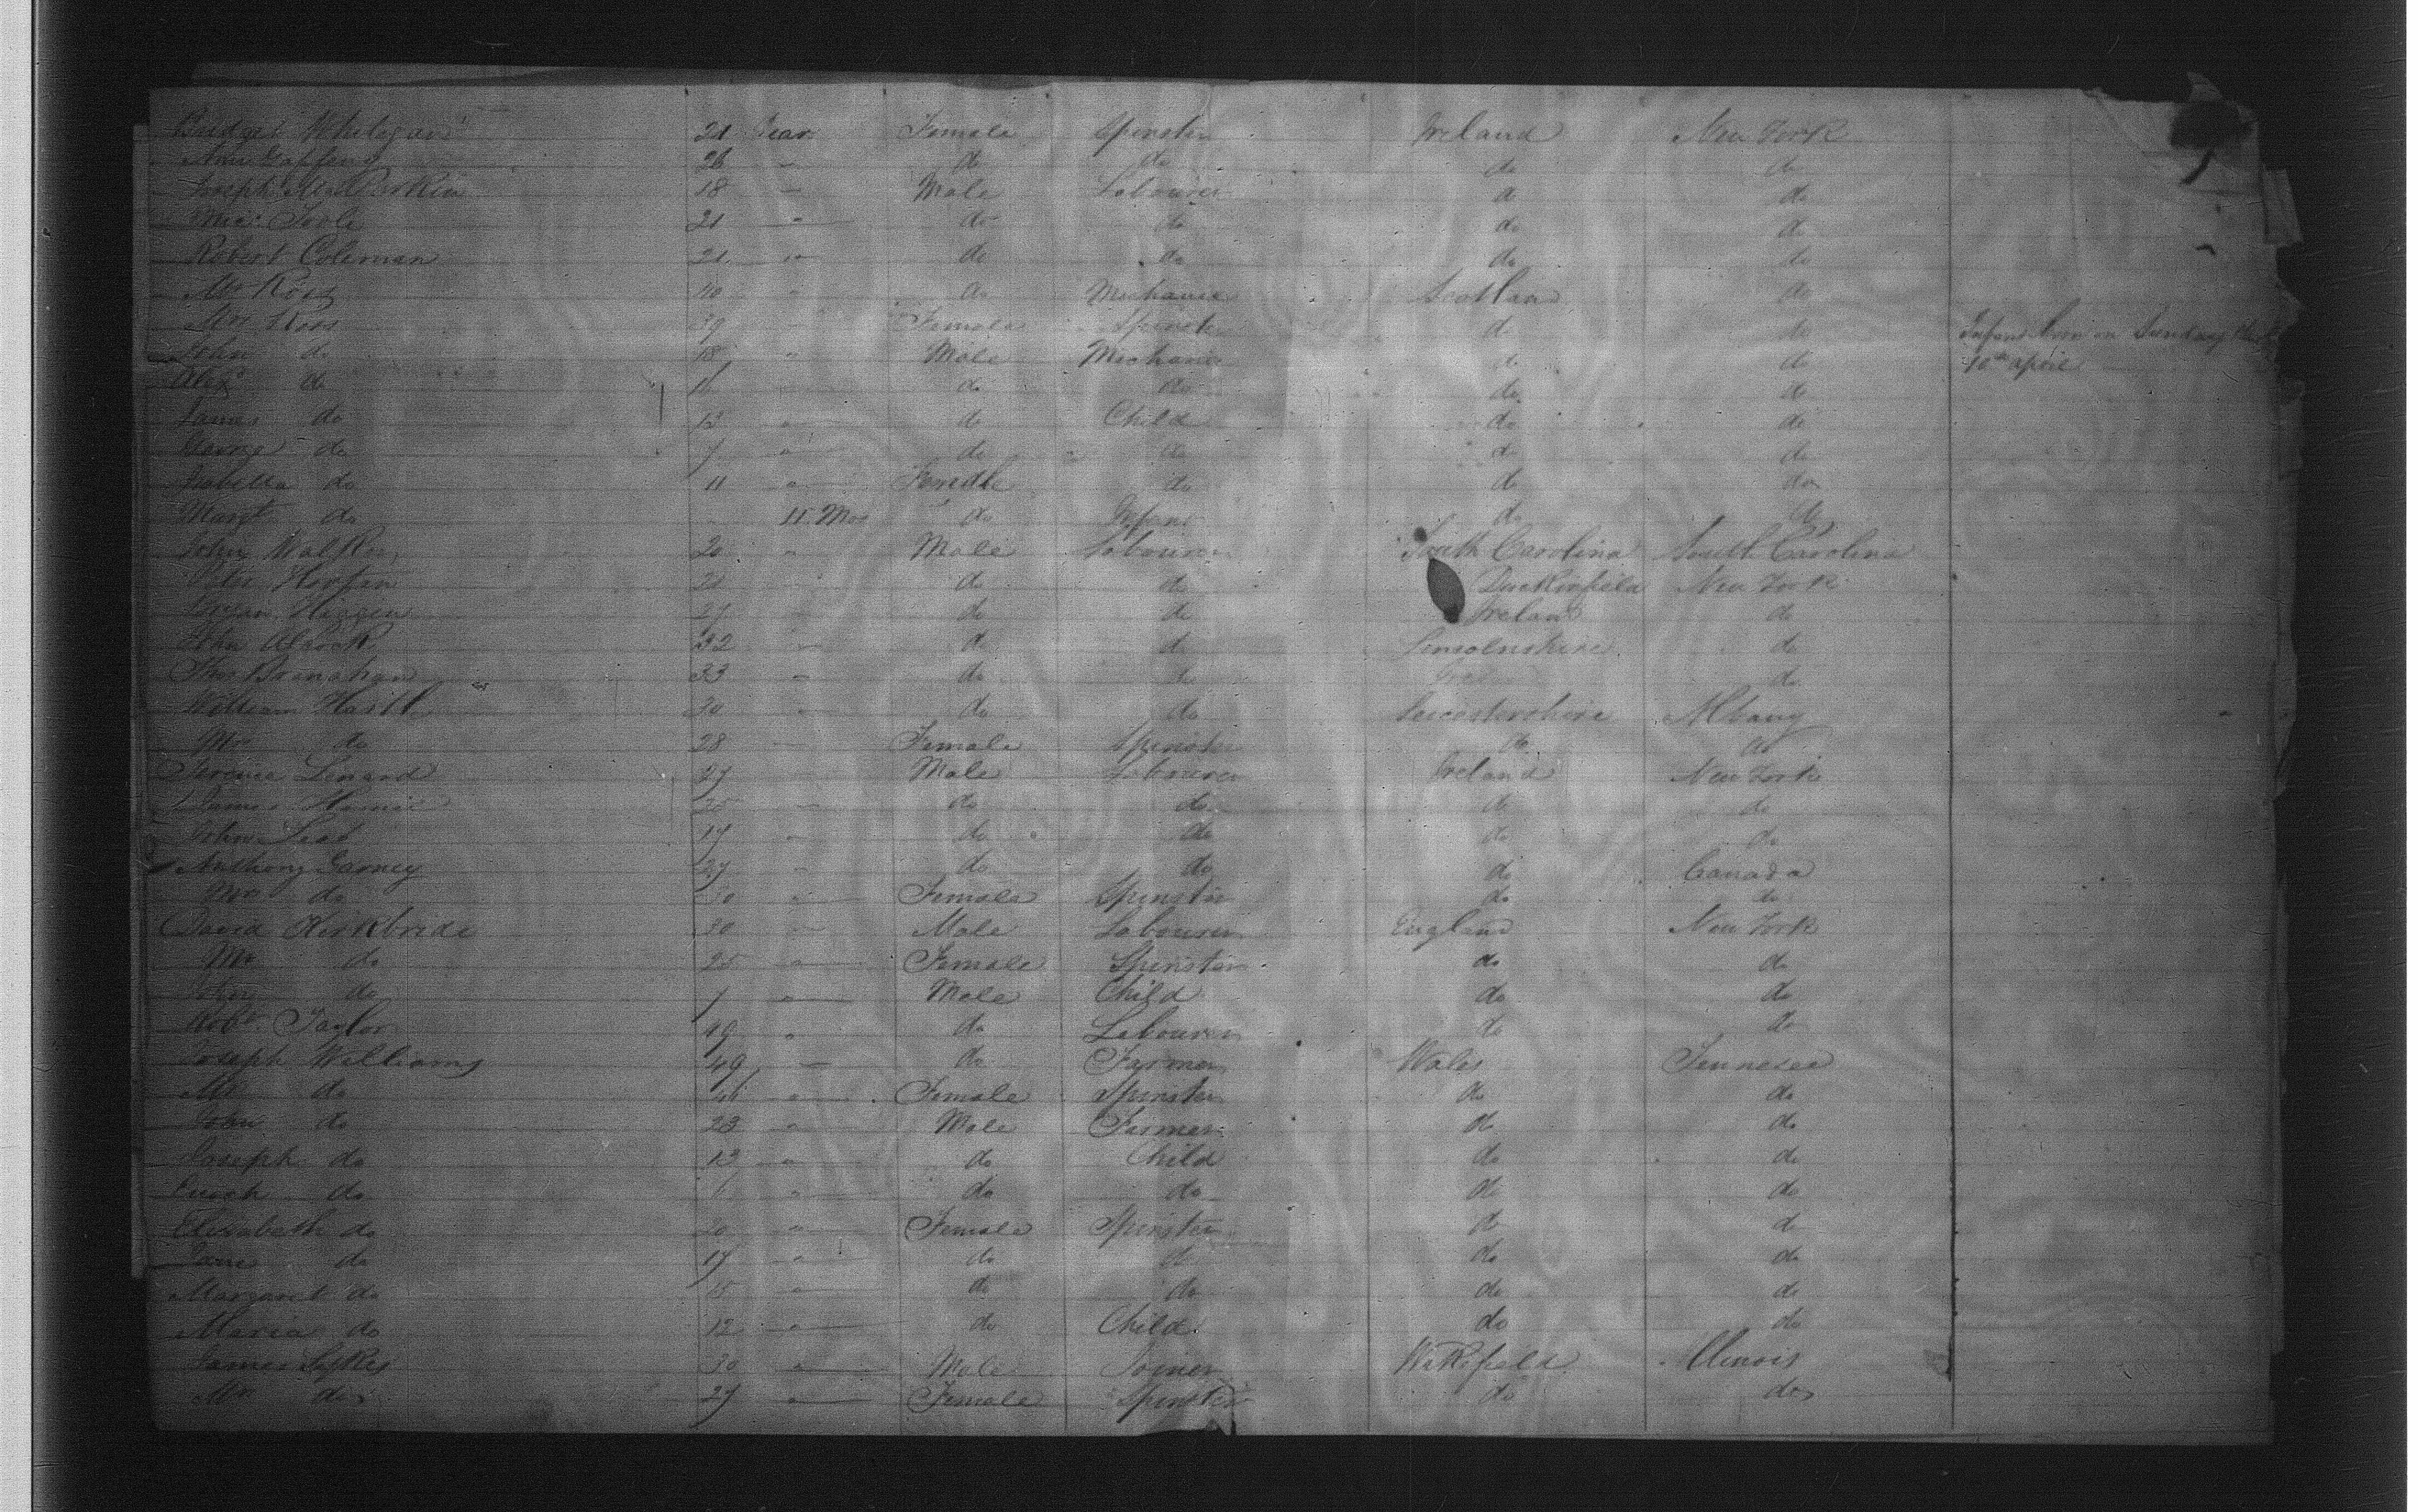 Bridget 21 Years Female Spinster Ireland New York
Ann 26 " do do do do
Joseph 18 " Male Labourer do do
Mic. Toole 21 " do do do do
Robert Coleman 21 " do do do do
Mr Ross 40 " do Mechanic Scotland do
Mrs Ross 39 " Female Spinster do do Infant born on Sunday
John do 18 " Male Mechanic do do 10th april
Alexr do " do do do do
James do 13 " do Child do do
George do 7 " do do do do
Isabella do 11 " Female do do do
Margt do 11 Mos do Infant do do
John Walker 20 " Male Labourer South Carolina South Carolina
21 " do do Duckinfield New York
Bryan Higgen 27 " do do Ireland do
John 32 " do do Lincolnshire do
Thos Branahan 33 " do do do
William 30 " do do Leicestershire Albany
Mrs do 28 " Female Spinster do do
Lenard 27 " Male Labourer Ireland New York
James 25 " do do do do
John 17 " do do do do
Anthony Garney 27 " do do do Canada
Mrs do 30 " Female Spinster do do
David Kirkbride 30 " Male Labourer England New York
Mrs do 25 " Female Spinster do do
John do 1 " Male Child do do
Robt Taylor 49 " do Labourer do do
Joseph Williams 49 " do Farmer Wales Tennesee
Mrs do " Female Spinster do do
John do 23 " Male Farmer do do
Joseph do 13 " do Child do do
Enoch do " do do do do
Elisabeth do 20 " Female Spinster do do
Jane do 17 " do do do do
Margaret do 15 " do do do do
Maria do 12 " do Child do do
James Sykes 30 " Male Joiner Wakefield Illinois
Mrs do 27 " Female Spinster do do